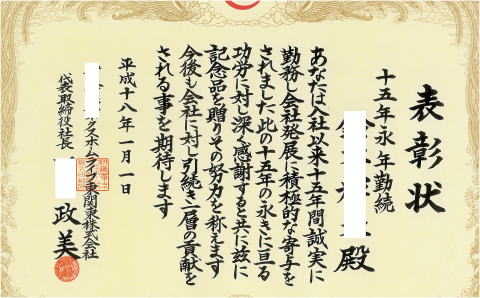 表彰状
十五年永年勤続
殿
あなたは入社以来十五年間誠実に
勤務し会社発展に積極的な寄与を
されました此の十五年の永きに亘る
功労に対し深く感謝すると共に茲に
記念品を贈りその努力を称えます
今後も会社に対し引続き一層の貢献を
される事を期待します
平成十八年一月一日
クスホームライフ東関東株式会社
代表取締役社長
政美